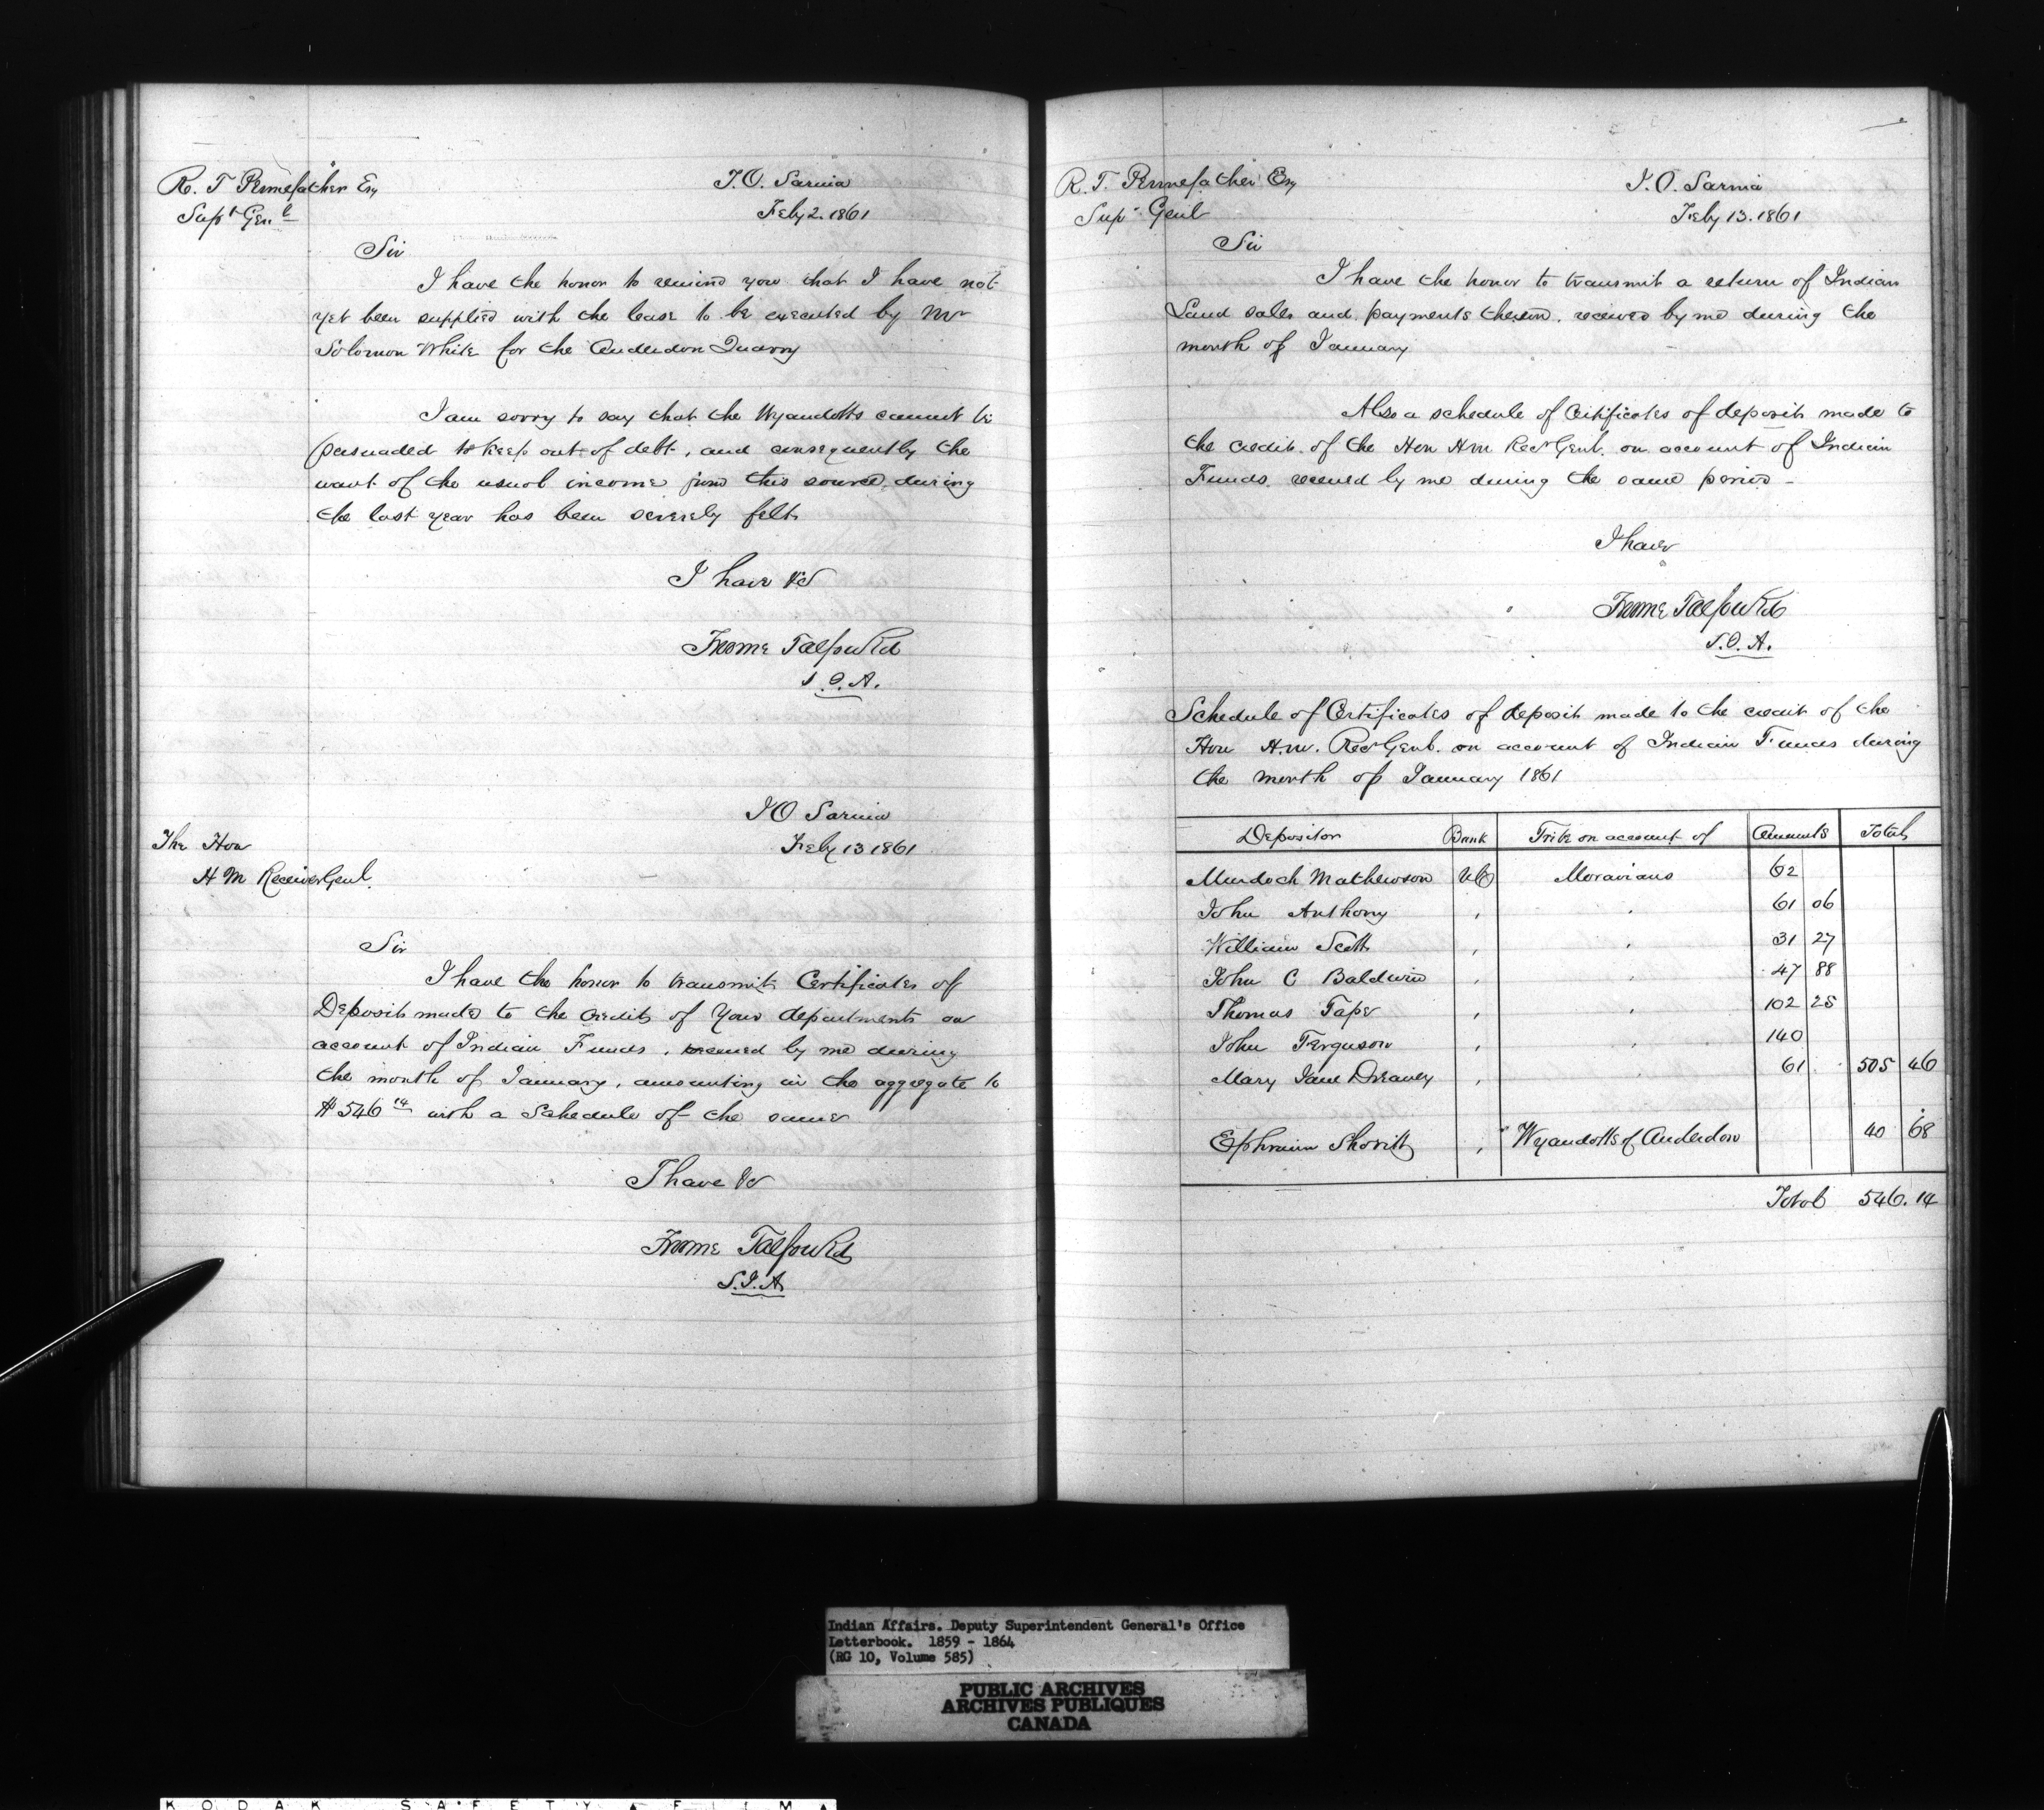 R. T Pennefather Esq
Supt Genl
I.O. Sarnia
Feby 2. 1861
Sir
I have the honor to remind you that I have not
yet been supplied with the lease to be executed by Mr
Solomon White for the Anderdon Quarry
I am sorry to say that the Wyandotts cannot be
persuaded to keep out of debt, and consequently the
want of the usual income from this source, during
the last year has been severely felt
I have &c
Froome Talfourd
S.I.A.
I O Sarnia
Feby 13 1861
The Hon
H M Receiver Genl.
Sir
I have the honor to transmit Certificates of
Deposit made to the credit of Your department on
account of Indian Funds, received by me during
the month of January, amounting in the aggregate to
$546 14 with a Schedule of the same
I have &c
Froome Talfourd
S.I.A
R. T. Pennefather Esq
Supt Genl
I.O. Sarnia
Feby 13. 1861
Sir
I have the honor to transmit a return of Indian
Land sales and payments thereon, received by me during the
month of January
Also a schedule of Certificates of deposit made to
the credit of the Hon H.M Recr Genl. on account of Indian
Funds received by me during the same period -
I have
Froome Talfourd
S.I.A.
Schedule of Certificates of deposit made to the credit of the
Hon H.M. Recr Genl. on account of Indian Funds during
the month of January 1861
Depositor Bank Tribe on account of Amounts Totals
Murdoch Mathewson UC Moravians 62
John Anthony , , 61 06
William Scott , , 31 27
John C Baldwin , , 47 88
Thomas Taper , , 102 25
John Ferguson , , 140
Mary Jane Dreaney , , 61 505 46
Ephraim , Wyandotts of Anderdon 40 68
Total 546.14
Indian Affairs. Deputy Superintendent General's Office
Letterbook. 1859 - 1864
(RG 10, Volume 585)
PUBLIC ARCHIVES
ARCHIVES PUBLIQUES
CANADA
KODAK SAFETY FILM